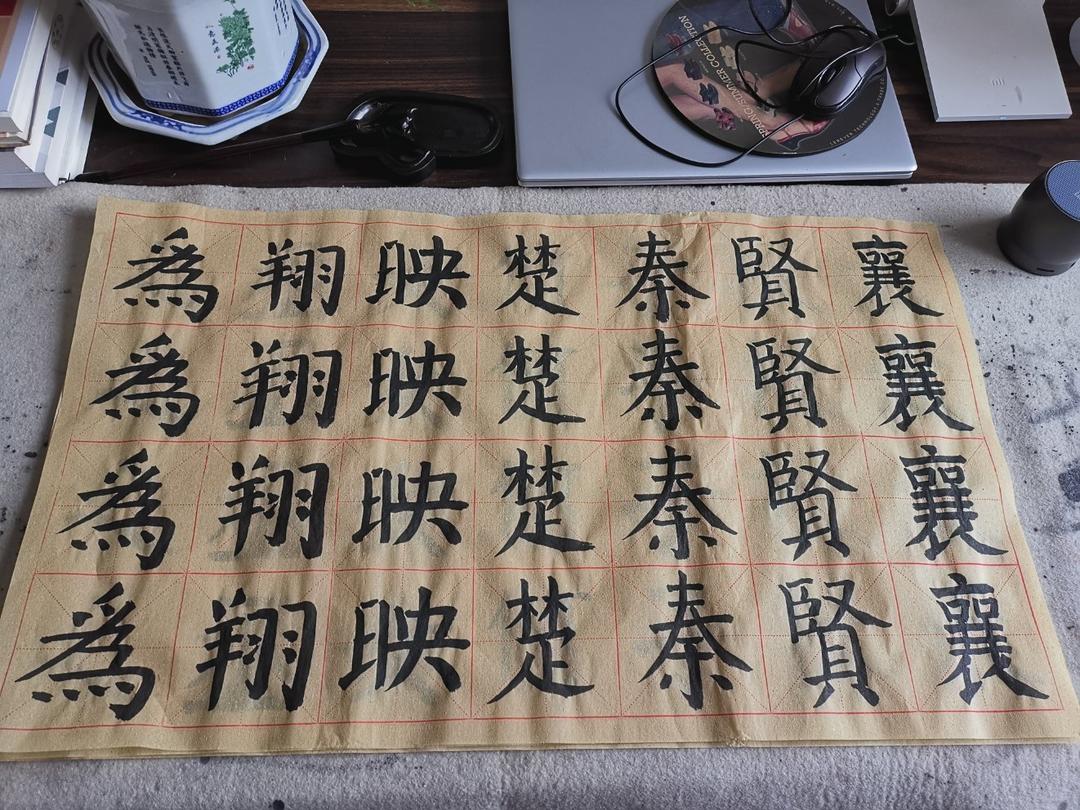 襄襄襄襄
賢賢賢賢
秦秦秦秦
楚楚楚楚
映映映映
翔翔翔翔
爲爲爲爲
SPRING/SUMMER COLLECTION